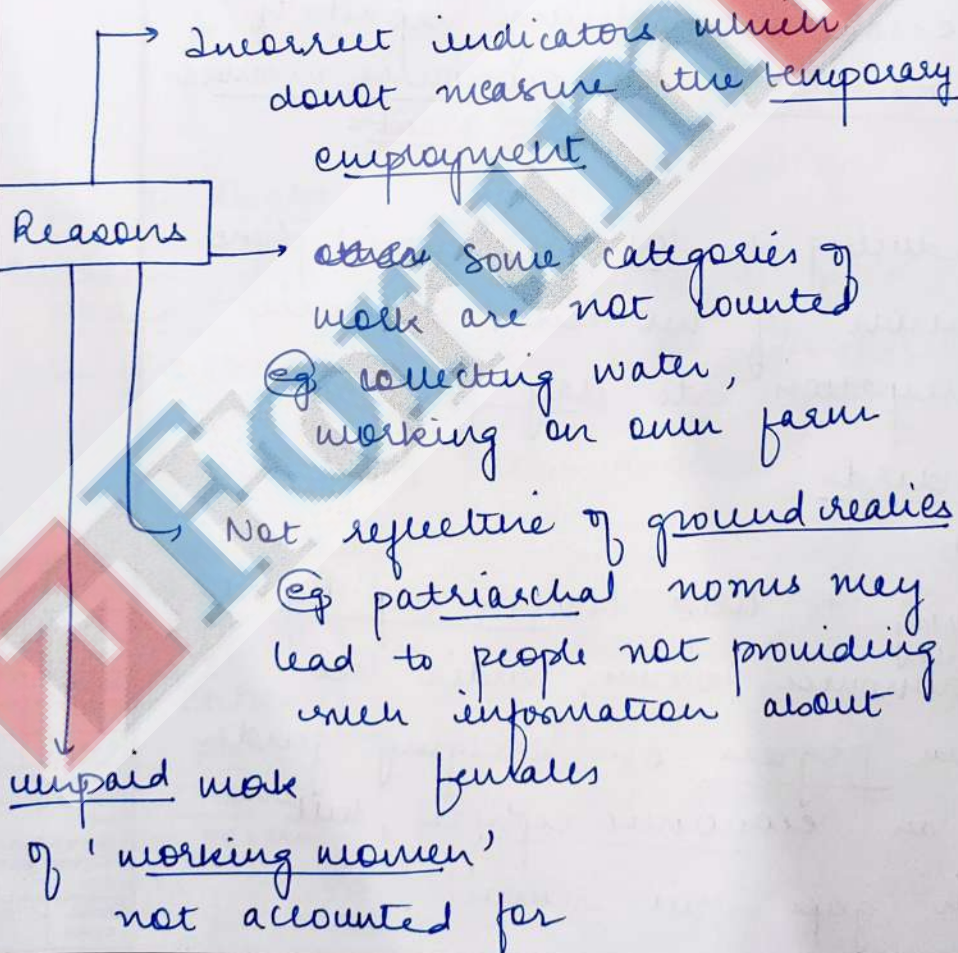 Incorrect indicators which
donot measure the temporary
employment
Reasons
Some categories of
work are not counted
eg collecting water,
working on own farm
Not reflective of ground realies
eg patriarchal norms may
lead to people not providing
such information about
females
unpaid work
of 'working women'
not accounted for
Forum